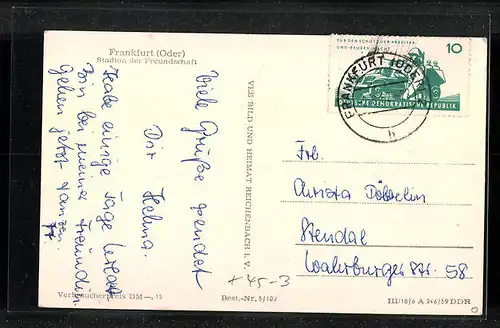 Frankfurt (Oder)
Stadion der Freundschaft
Viele Grüße sendet
Dir Helma.
Habe einige Tage Urlaub
bin bei meiner Freundin.
Gehen jetzt tanzen.
Verbraucherpreis DM —,15
Best.-Nr. 5/102
+ 45-3
VEB BILD UND HEIMAT REICHENBACH I. V.
FÜR DEN SCHUTZ DER ARBEITER-
UND-BAUERN-MACHT
10
DEUTSCHE DEMOKRATISCHE REPUBLIK
FRANKFURT (ODER)
h
Frl.
Christa
Stendal
Str. 58
III/18/6 A 246/59 DDR